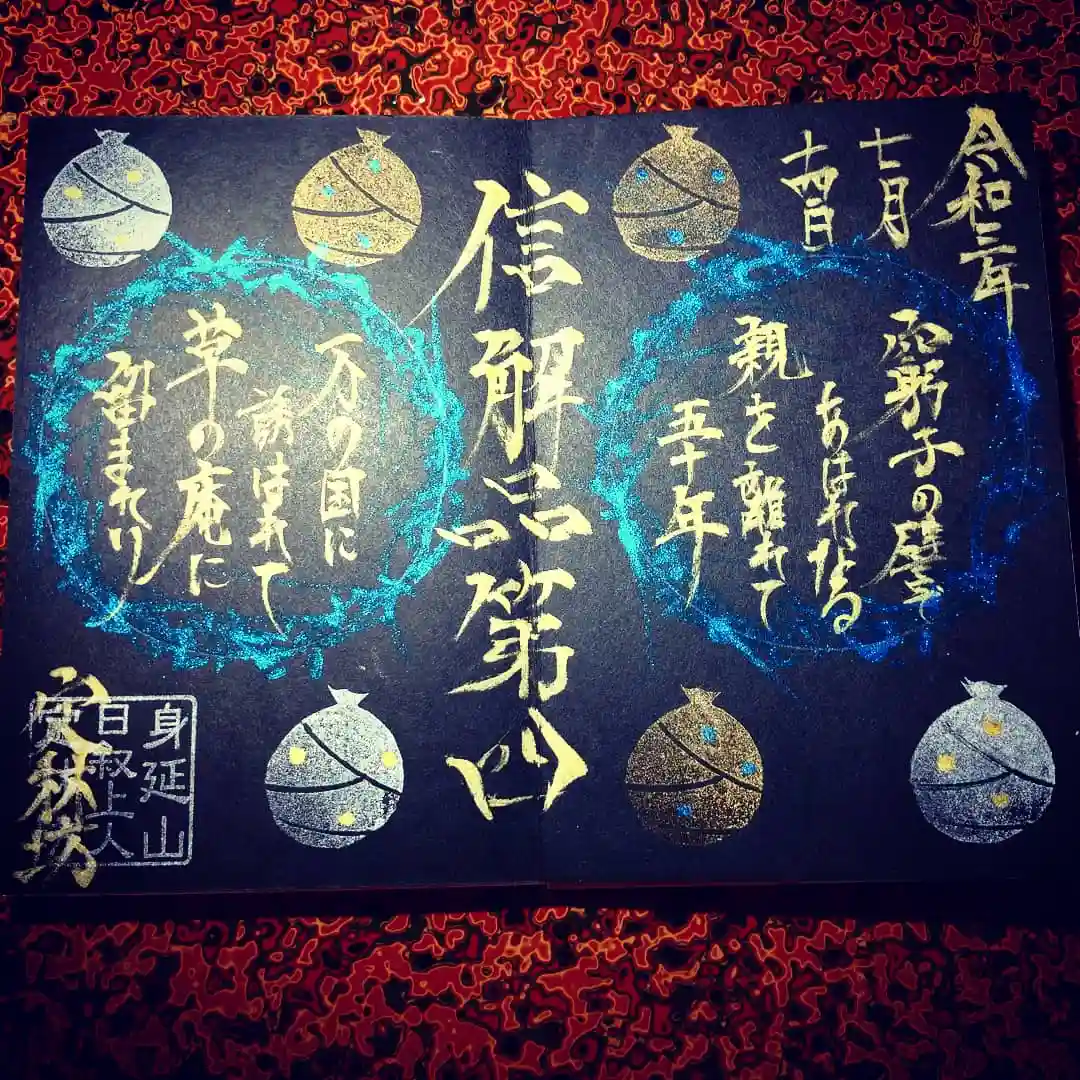 令和三年
七月
十四日
窮子の譬
あはれなる
親を離れて
五十年
信解品第四
万の国に
誘はれて
草の庵に
留まれり
身延山
日叔上人
秋坊